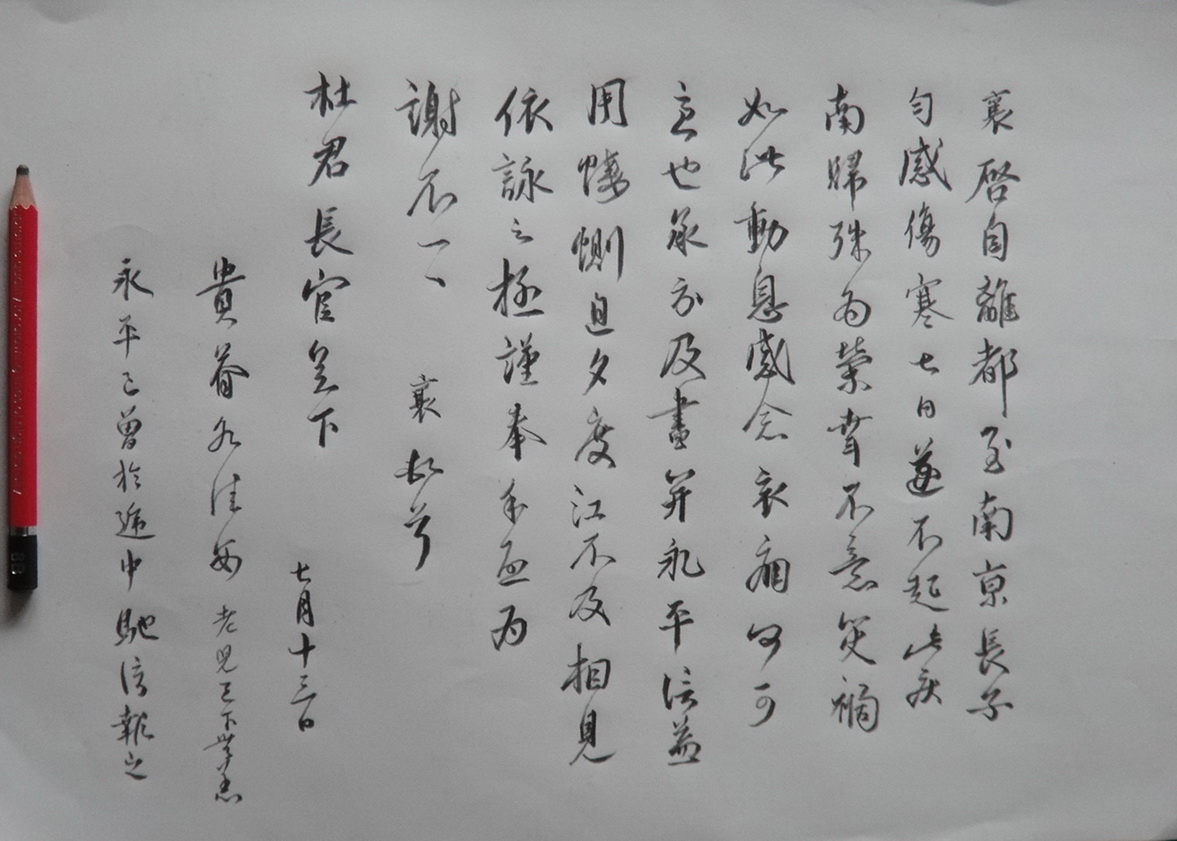 襄啓自離都至南京長子
勻感傷寒七日遂不起此疾
南歸殊為榮幸不意災禍
如此動息感念哀痛何可
言也承示及書并永平信益
用悽惻旦夕度江不及相見
依詠之極謹奉手啓為
謝不一一 襄頓首
杜君長官足下 七月十三日
貴眷各佳安 老兒已下無恙
永平已曾於遞中馳信報之